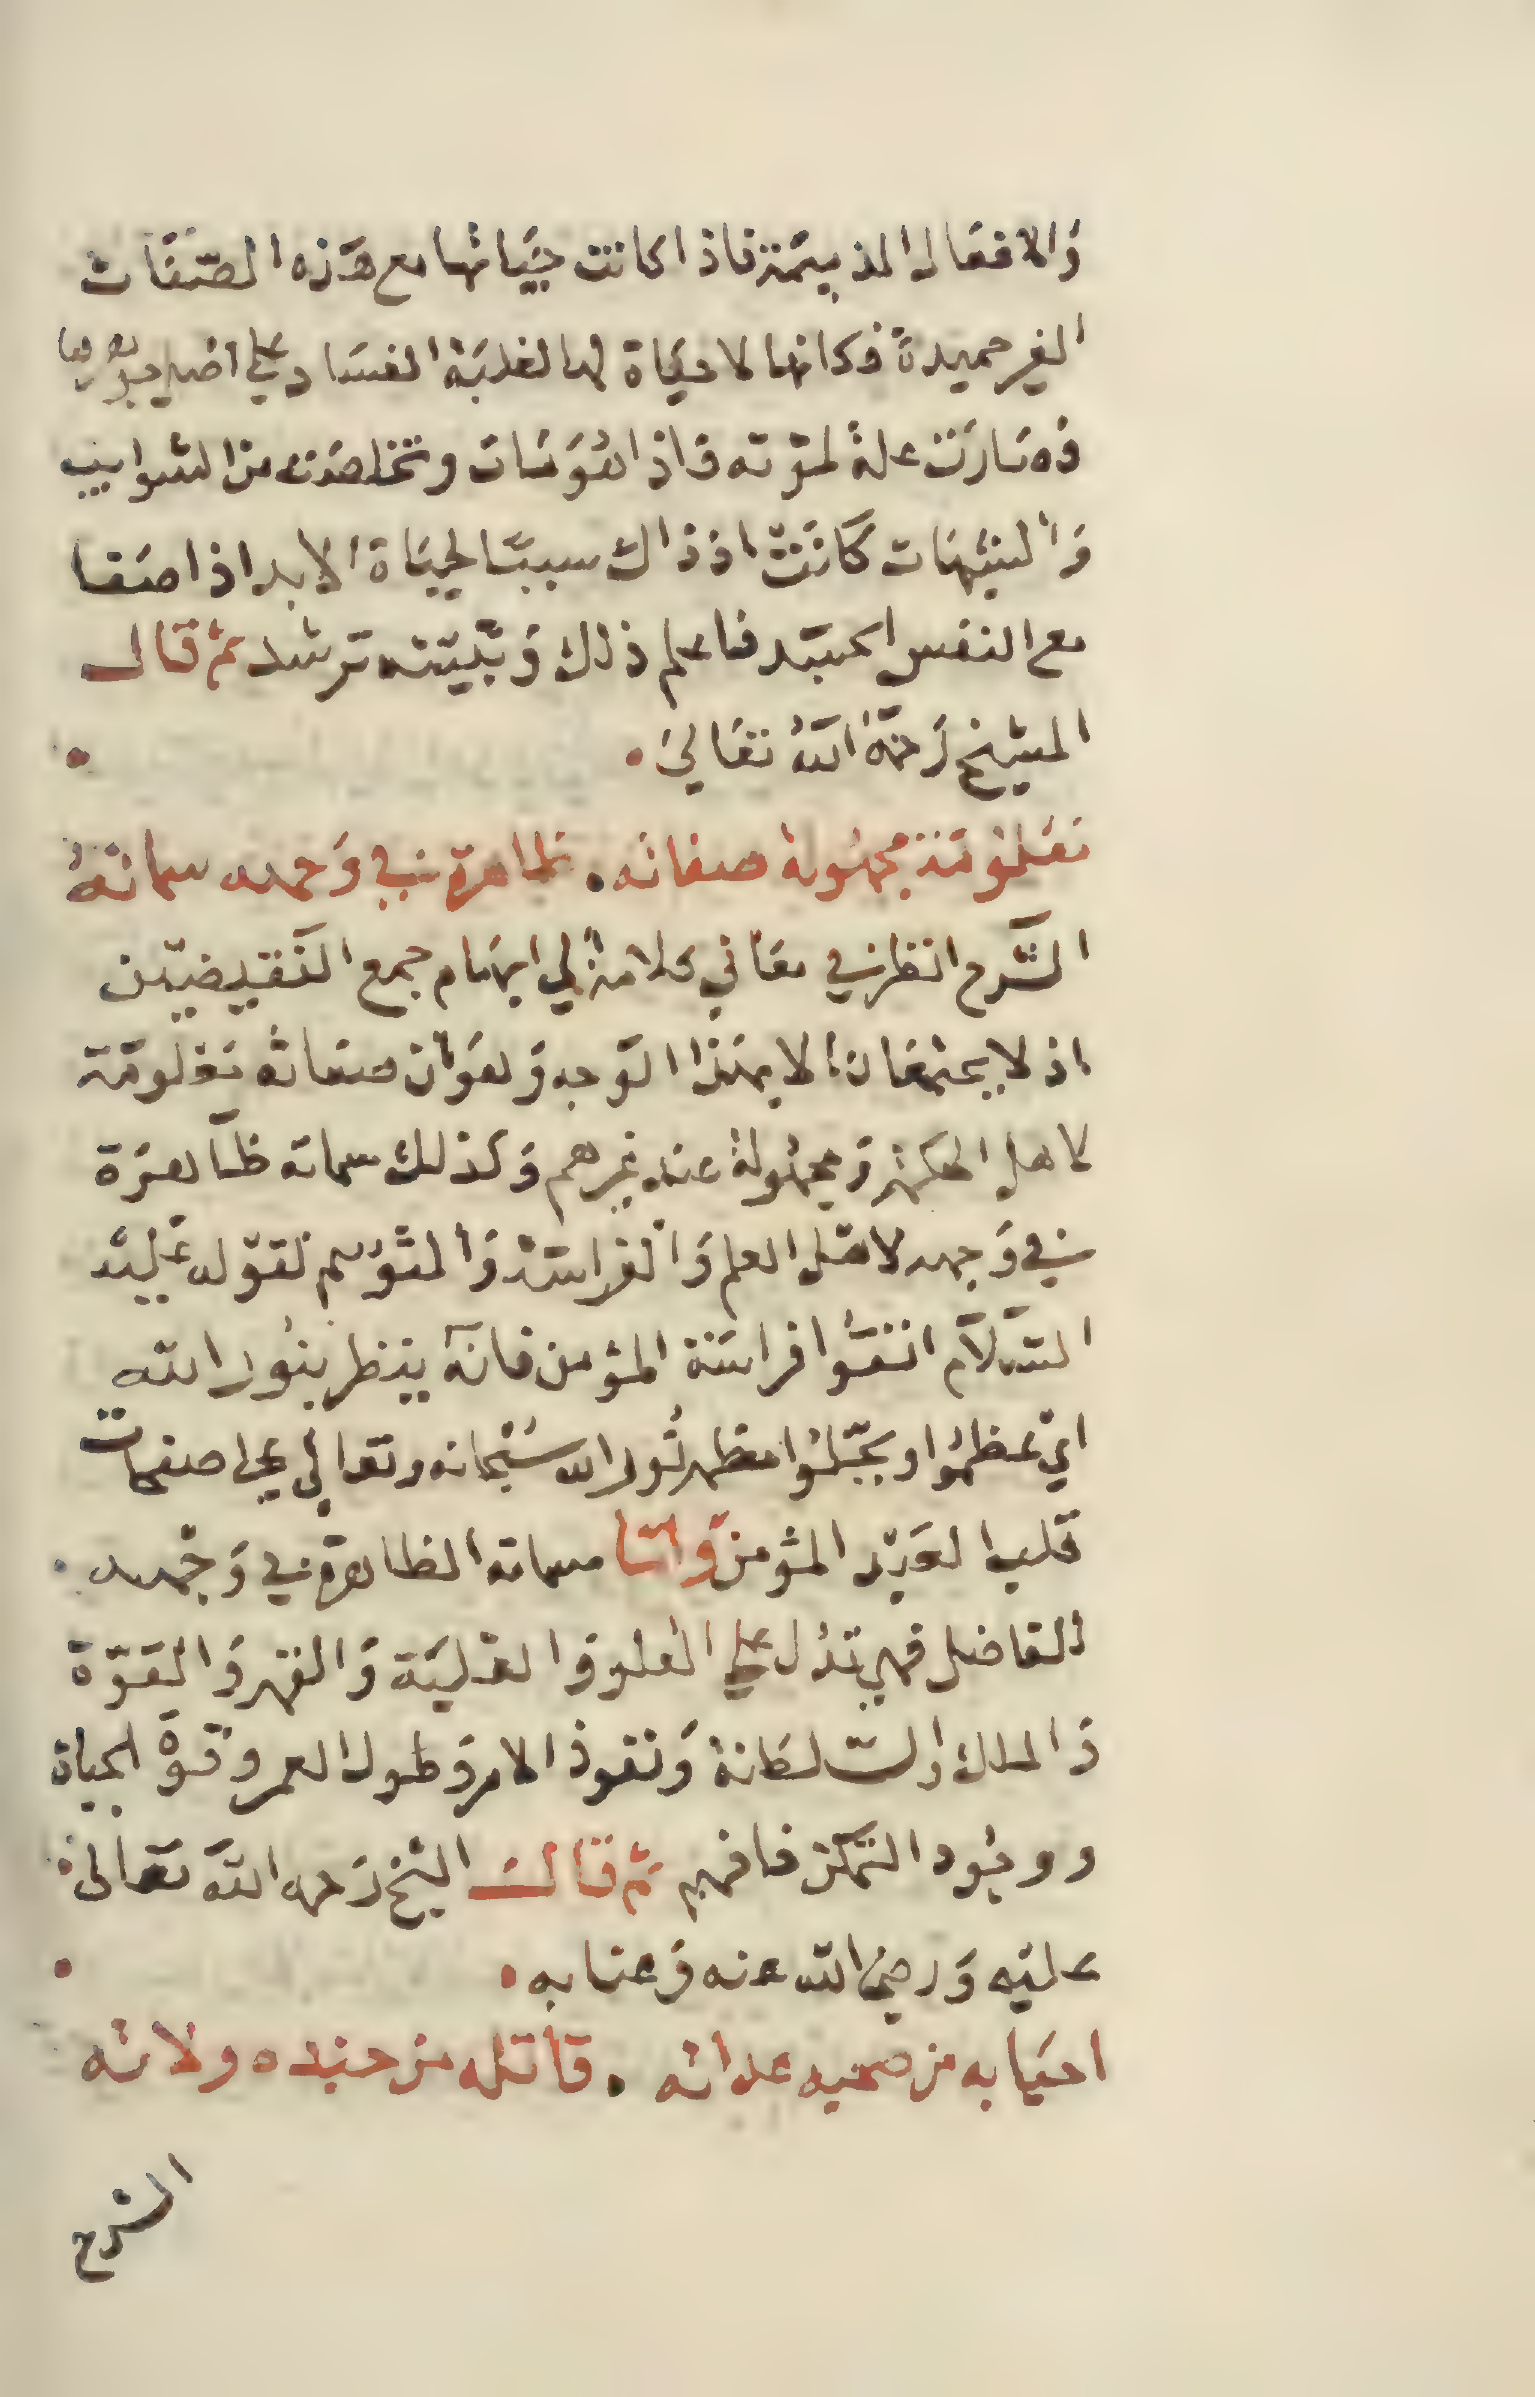 وَالافعَال الذميمَة فاذا كانت حيَاتها مع هَذه الصّفَات
الغير حميدة فكانها لا حيَاة لها لغلبَة الفسَاد علي اصل جوهرها
فصَارَت علة لموته فاذا هُوَ مَات وتخلصَت من الشوايب
وَالشبهَات كَانَتْ اذ ذاك سببًا لحيَاة الابد اذا صَفا
مع النفس الجسَد فاعلم ذلك وَبَيّته ترشد ثم قال
الشيخ رَحمَهُ اللهُ تعَاليَ .
مَعلومَة مجهُولة صفاته . ظاهرة في وَجهه سماتهُ
الشَّرح انظر في معَاني كلامه الي ايهَام جمع النَّقيضَين
اذ لا يجتمعَان الا بهَذا الوَجه وَهوَ ان صفاته مَعلومَة
لاهل الحكمة وَمجهُولة عند غيرهم وَكذلك سماته ظاهرَة
في وَجهه لاهل العلم وَالفراسَة وَالتوَسم لقوله عَليه
السَّلاَم اتقوُا فراسَة المؤمن فانه ينظر بنُور الله
ايْ عظمُوا وبجّلوُا مظهر نُور الله سُبحانه وتعالي علي صفحات
قلب العَبْد المؤمن وَامّا سماته الظاهرة في وَجْهه .
الفاضل فهي تدُل علي العُلو وَالغلبَة وَالقهر وَالقوّة
وَالملك والسّلطَانة وَنفوذ الامر وَطول العمر وقوَّة الحياة
ووجُود التمكن فافهم ثم قال الشيخ رَحمه الله تعَالى
عليه وَرضي الله عنه وَعنا به .
احيَا به من صحبه عداته . قاتله من جنده ولاته
الشرح